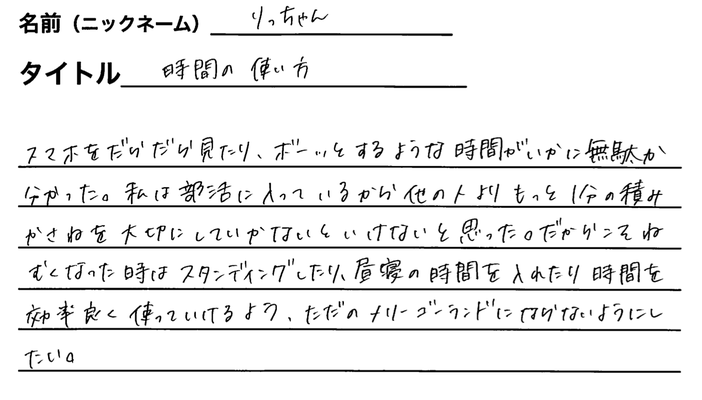 名前（ニックネーム） りっちゃん
タイトル 時間の使い方
スマホをだらだら見たり、ボーッとするような時間がいかに無駄か
分かった。私は部活に入っているから他の人よりもっと1分の積み
かさねを大切にしていかないといけないと思った。だからこそね
むくなった時はスタンディングしたり、昼寝の時間を入れたり時間を
効率良く使っていけるよう、ただのメリーゴーランドにならないようにし
たい。